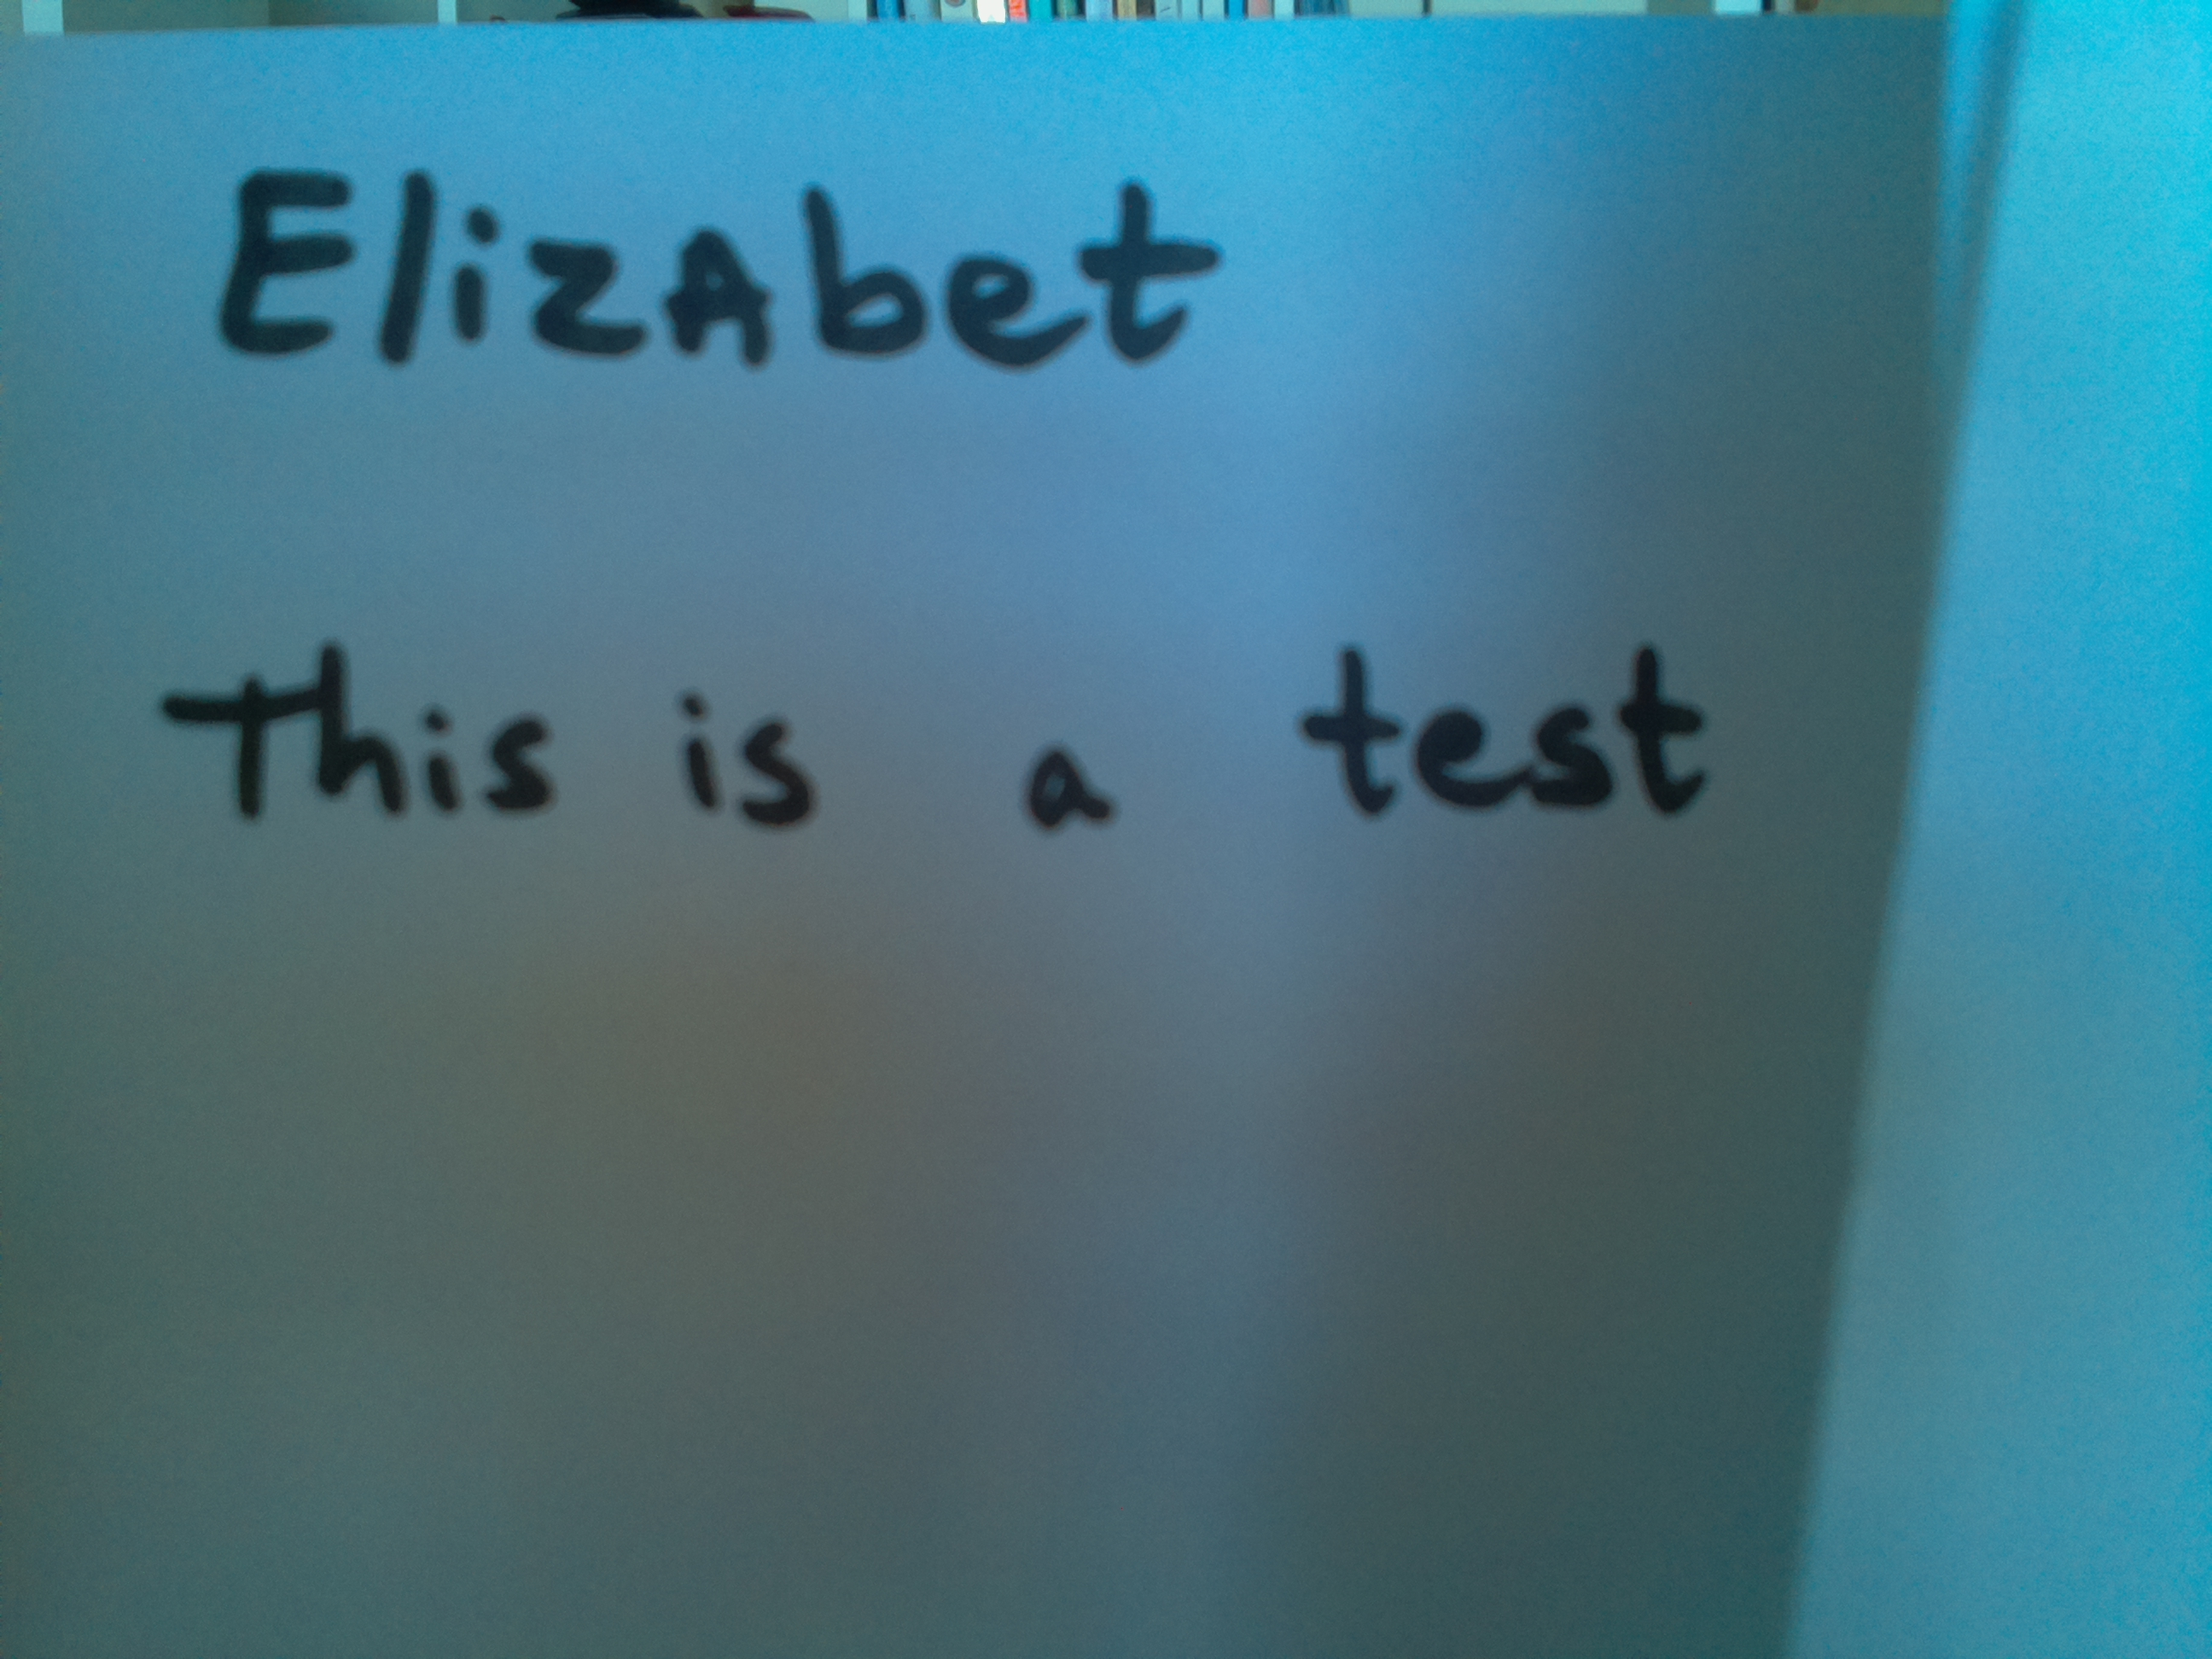 ElizAbet
This is a test